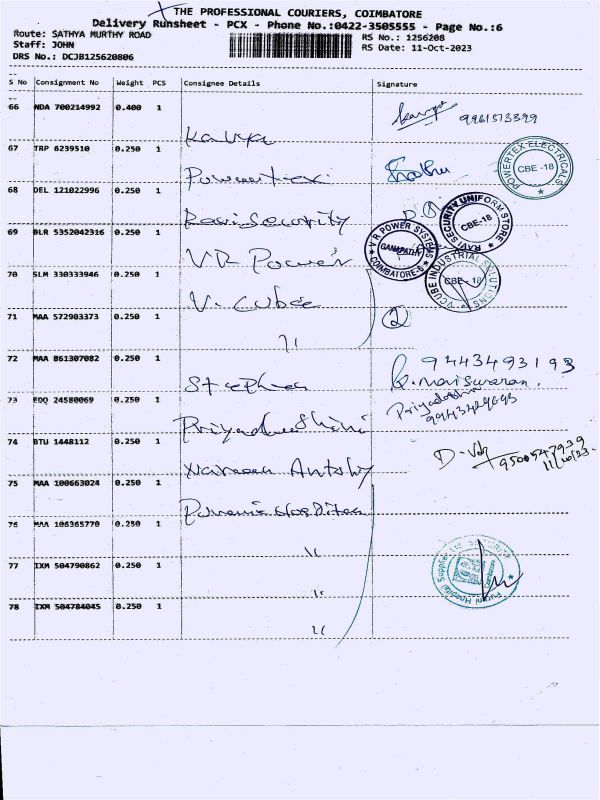 THE PROFESSIONAL COURIERS, COIMBATORE
Delivery Runsheet - PCX - Phone No.:0422-3505555 - Page No.:6
Route: SATHYA MURTHY ROAD RS No.: 1256208
Staff: JOHN RS Date: 11-Oct-2023
DRS No.: DCJB125620806
S No Consignment No Weight PCS Consignee Details Signature
66 NDA 700214992 0.400 1
Kavya 9961573399
67 TRP 6239510 0.250 1
Powertex
POWERTEX-ELECTRICALS CBE -18
68 DEL 121022996 0.250 1
Ravi Security
RAVI SECURITY UNIFORM STORE CBE-18
69 BLR 5352042316 0.250 1
VR Power
V R POWER SYSTEMS GANAPATHY COIMBATORE-6
70 SLM 330333946 0.250 1
V. Cube
VCUBE INDUSTRIAL SOLUTIONS CBE - 18
71 MAA 572903373 0.250 1
11 2
72 MAA 861307082 0.250 1
Stephen 9443493193
73 EDQ 24580069 0.250 1
Priyadarshini 9943429693
74 BTU 1448112 0.250 1
Antony 9500547939
11/10/23
75 MAA 100663024 0.250 1
76 MAA 106365770 0.250 1
11
77 IXM 504790862 0.250 1
11
78 IXM 504784045 0.250 1
11